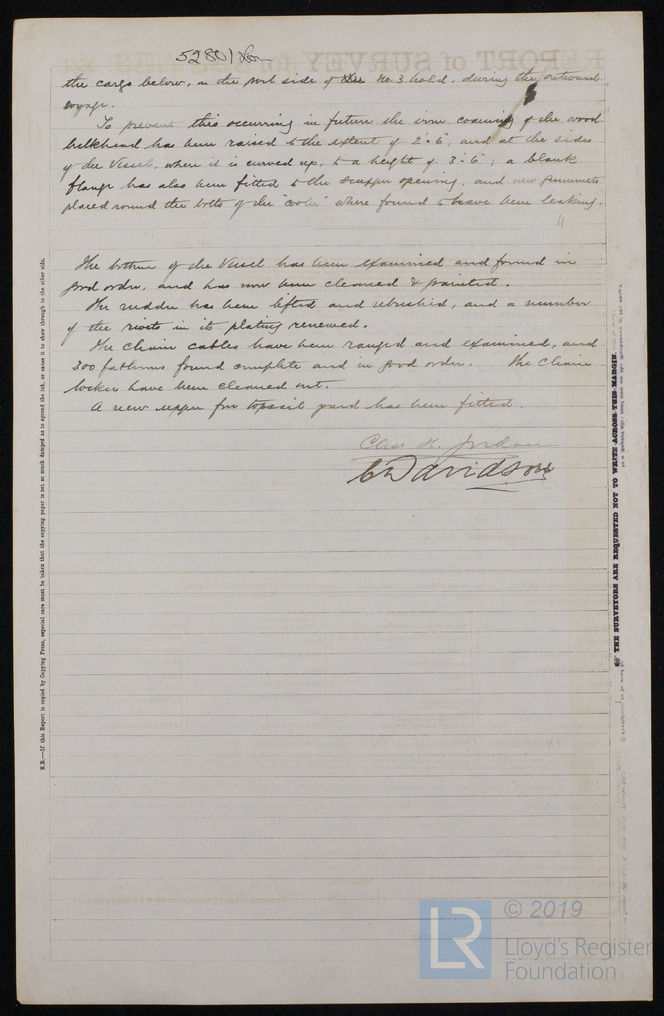 52801 Lon
the cargo below, in the port side of the No. 3 hold, during the outward
voyage.
To prevent this occurring in future the iron coaming of the wood
bulkhead has been raised to the extent of 2'-6", and at the sides
of the Vessel, where it is curved up, to a height of 3'-6"; a blank
flange has also been fitted to the scupper opening, and new grummets
placed round the bolts of the where found to have been leaking.
The bottom of the Vessel has been examined and found in
good order, and has now been cleaned & painted.
The rudder has been lifted and rebushed, and a number
of the rivets in its plating renewed.
The Chain cables have been ranged and examined, and
300 fathoms found complete and in good order. The Chain
lockers have been cleaned out.
A new upper fore topsail yard has been fitted.
Chas H. Jordan
C Davidson
N.B.—If this Report is copied by Copying Press, especial care must be taken that the copying paper is not so much damped as to spread the ink, or cause it to show through to the other side.
THE SURVEYORS ARE REQUESTED NOT TO WRITE ACROSS THIS MARGIN.
LR
© 2019
Lloyd's Register
Foundation